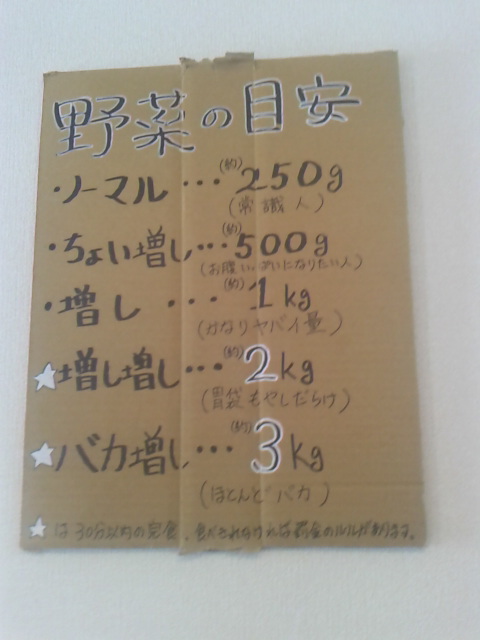 野菜の目安
・ノーマル・・・(約)250g
(常識人)
・ちょい増し・・・(約)500g
(お腹いっぱいになりたい人)
・増し・・・(約)1kg
(かなりヤバイ量)
☆増し増し・・・(約)2kg
(胃袋もやしだらけ)
☆バカ増し・・・(約)3kg
(ほとんどバカ)
☆は30分以内の完食、食べきれなければ罰金のルールがあります。